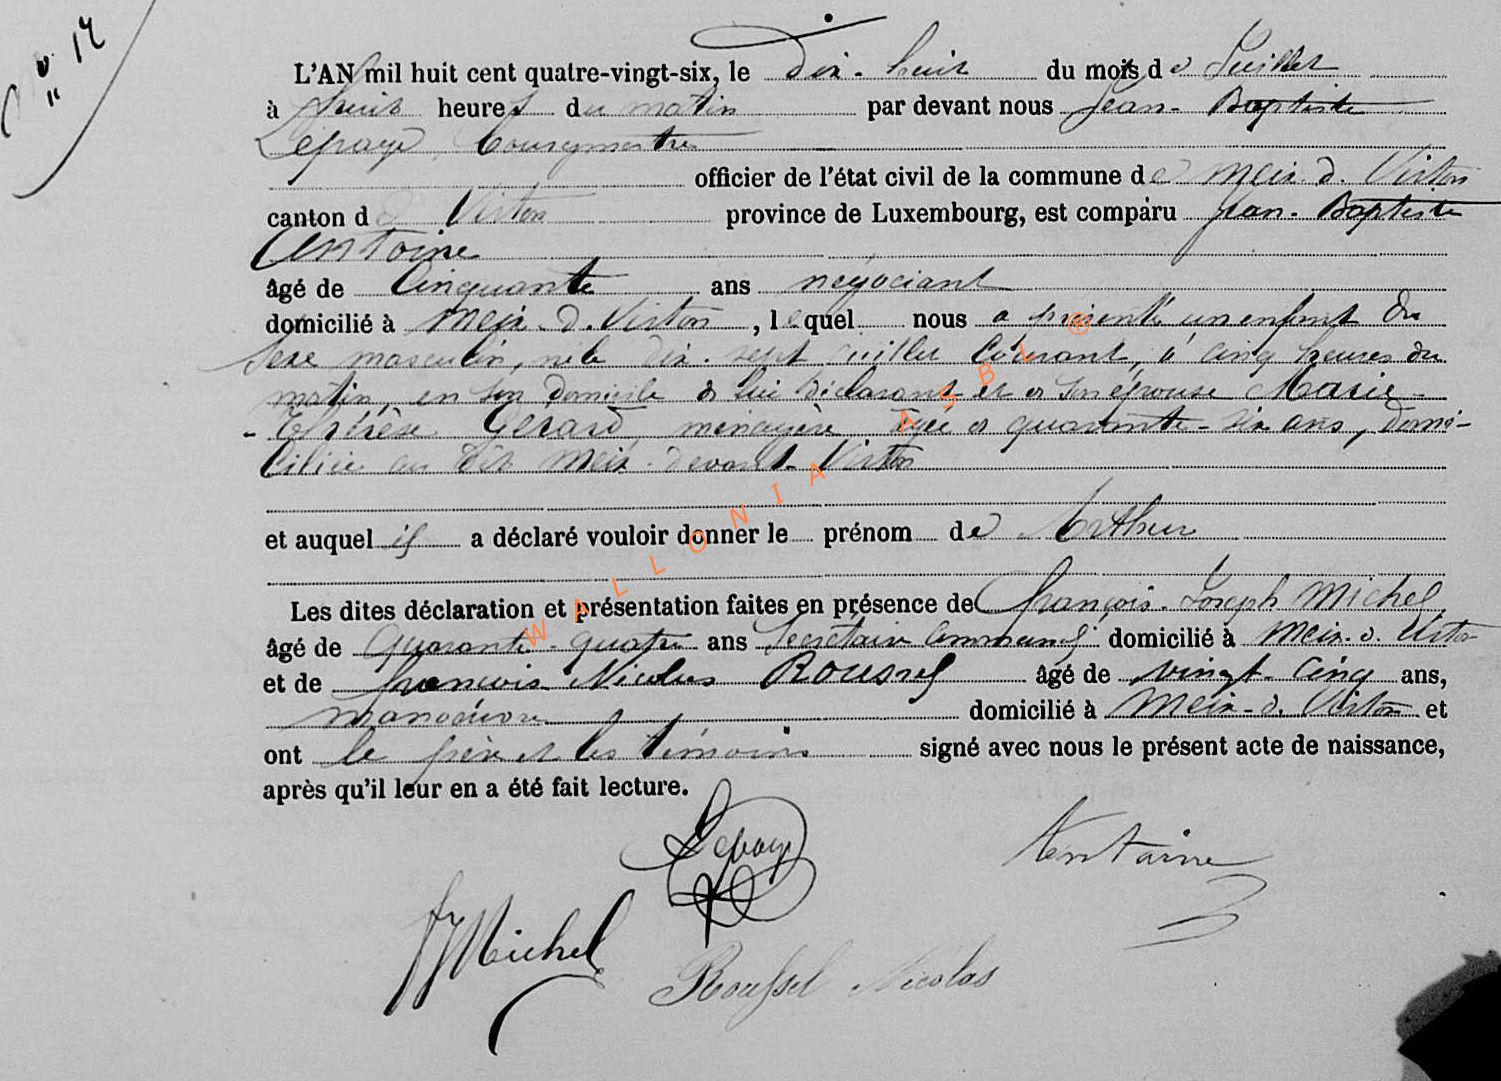 L'AN mil huit cent quatre-vingt-six, le dix-huit du mois de Juillet
à huit heures du matin par devant nous Jean-Baptiste
Lepage, bourgmestre
officier de l'état civil de la commune de Meix-d.-Virton
canton de Virton province de Luxembourg, est comparu Jean-Baptiste
Antoine
âgé de Cinquante ans négociant
domicilié à Meix-d.-Virton, lequel nous a présenté un enfant du
sexe masculin, né le dix-sept juillet courant, à cinq heures du
matin, en son domicile de lui déclarant et de son épouse Marie-
-Thérèse Gérard, ménagère âgée de quarante-six ans, domi-
ciliée au dit Meix-devant-Virton
et auquel il a déclaré vouloir donner le prénom de Arthur
Les dites déclaration et présentation faites en présence de François-Joseph Michel
âgé de Quarante-quatre ans Secrétaire Communal domicilié à Meix-d.-Virton
et de françois Nicolas Roussel âgé de vingt-cinq ans,
manoeuvre domicilié à Meix-d.-Virton et
ont le père et les témoins signé avec nous le présent acte de naissance,
après qu'il leur en a été fait lecture.
Lepage
Antoine
FJMichel
Roussel Nicolas
WALLONIA ASBL ®